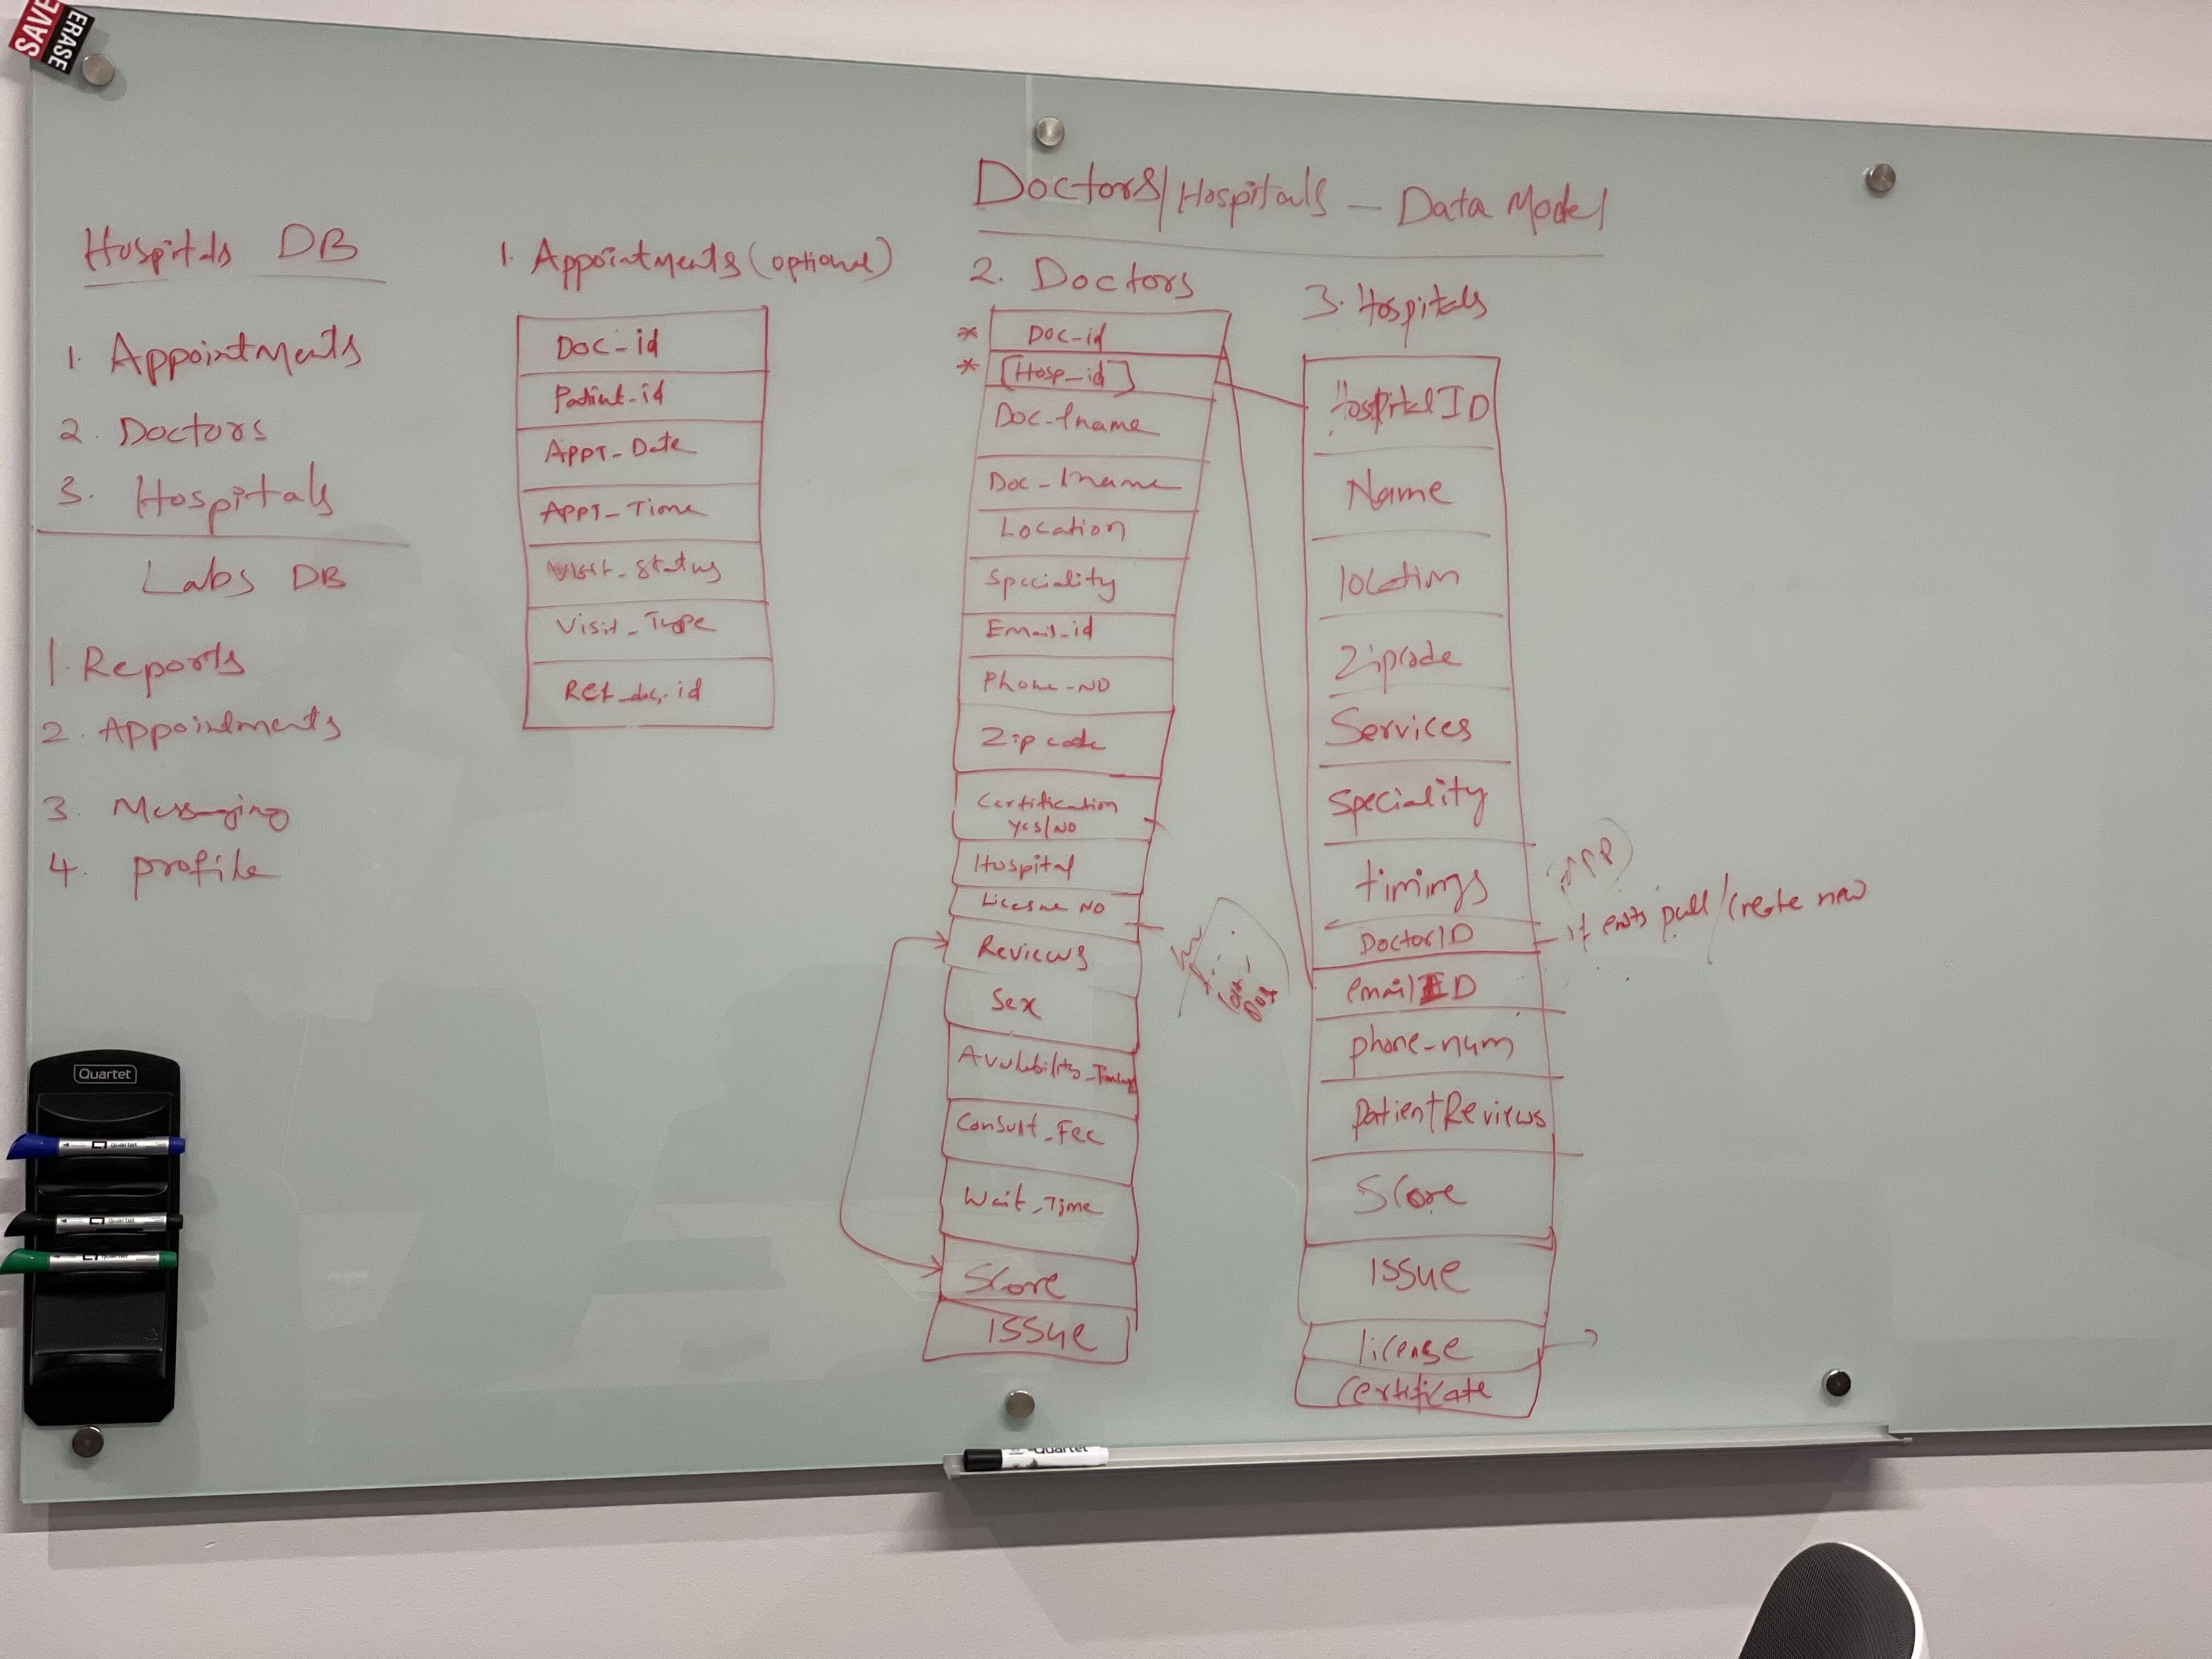 SAVE
ERASE
Doctors/Hospitals - Data Model
Hospitals DB
1. Appointments
2. Doctors
3. Hospitals
Labs DB
1. Reports
2. Appointments
3. Messaging
4. profile
1. Appointments (optional)
Doc-id
Patient-id
APPT-Date
APPT-Time
Visit-Status
Visit-Type
Ref-doc-id
2. Doctors
* Doc-id
* [Hosp-id]
Doc-fname
Doc-lname
Location
Speciality
Email-id
Phone-NO
Zip code
Certification
Yes/NO
Hospital
NO
Reviews
Sex
Consult-Fee
Wait-Time
Score
ISSUE
3. Hospitals
HospitalID
Name
location
Zipcode
Services
Speciality
timings
DoctorID - if pull/create new
emailID
phone-num
patientReviews
Score
ISSUE
license
certificate
Quartet
Quartet
Quartet
Quartet
Quartet